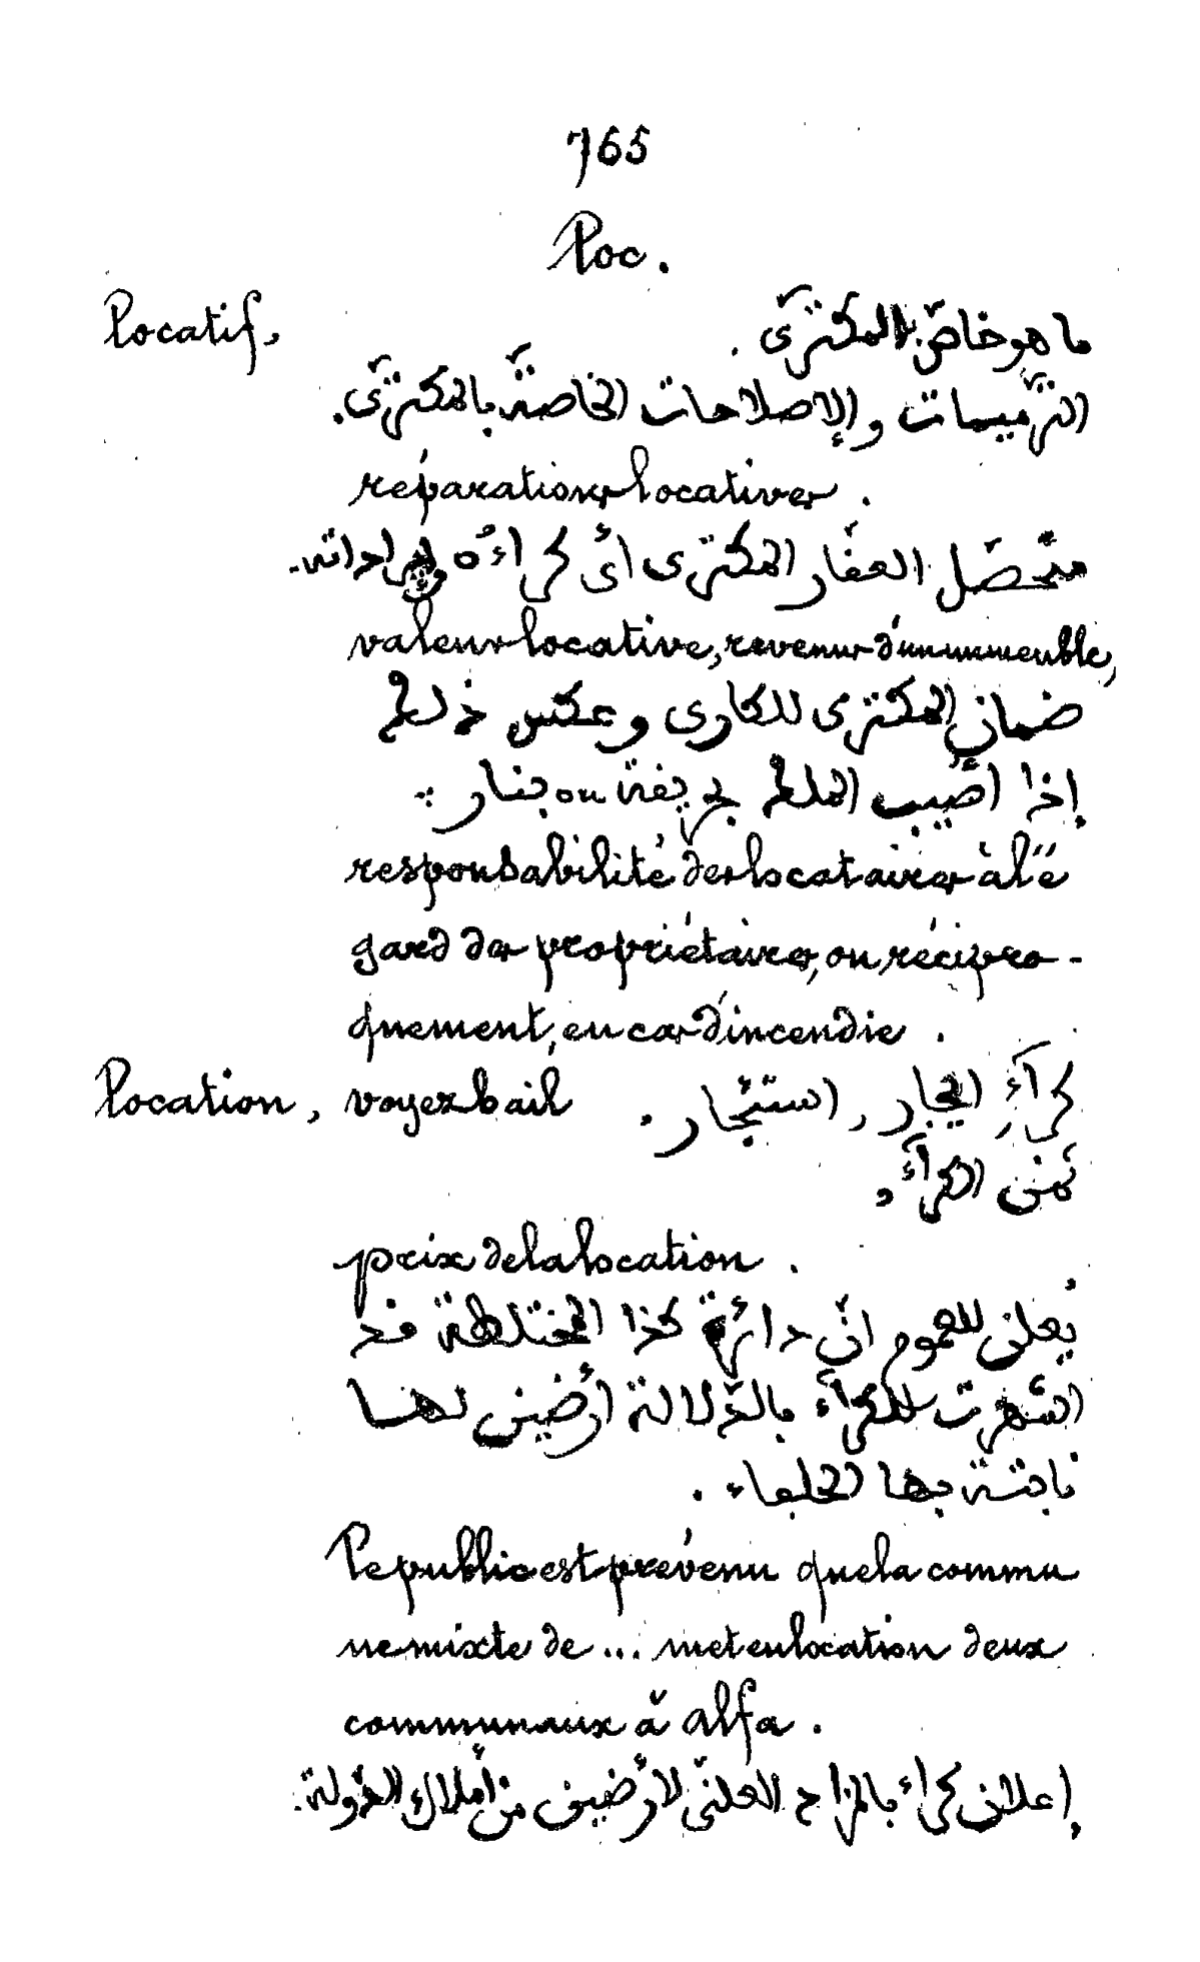 765
Loc.
Locatif, ما هو خاصّ بالمكترى .
الترّميمات والإصلاحات الخاصّة بالمكترى.
réparations locatives .
متحصّل العقّار المكترى أى كراءُه وإيراداته.
valeur locative, revenus d'un immeuble,
ضمان المكترى للكارى وعكس ذلك
إذا أُصيب الملك بحريقة ou بنار :
responsabilité des locataires à l'é
gard des propriétaires, ou récipro-
quement, en cas d'incendie .
Location, voyez bail كرآءِ، إيجار, استئجار .
ثمن الكرآء,
prix de la location .
يُعلن للعموم انّ دائرة كذا المختلطة قد
اشهرت للكرآء بالدّلالة أرضين لها
نابتة بها الحلفاء .
Le public est prévenu que la commu
ne mixte de ... met en location deux
communaux à alfa .
إعلان كراء بالمزاد العلنّى لأرضين من أملاك الدّولة.